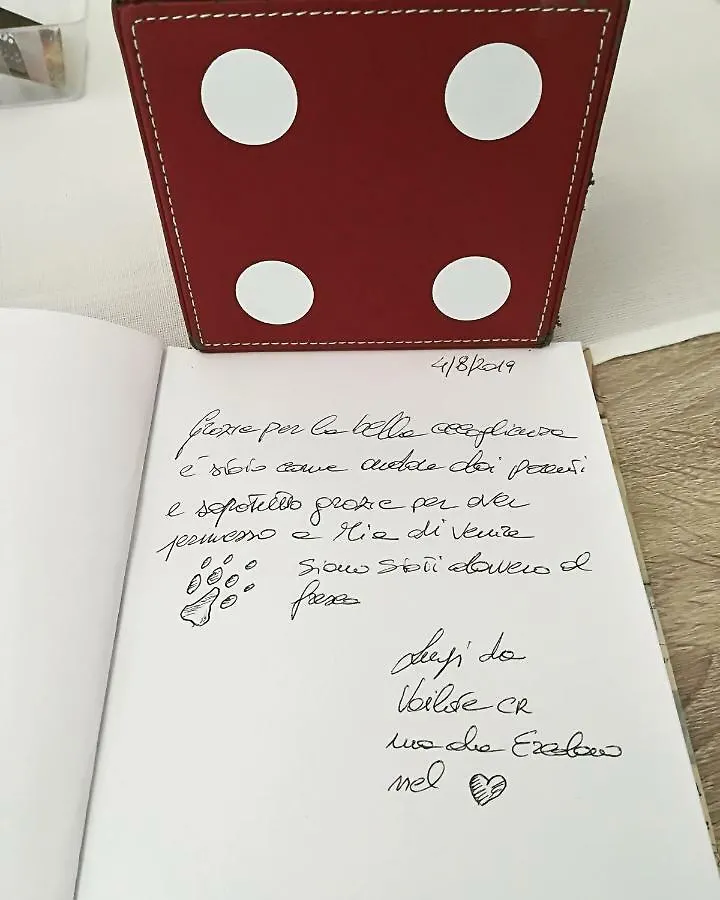 4/8/2019
Grazie per la bella accoglienza
è stato come andare dai parenti
e soprattutto grazie per aver
permesso a Mia di venire
siamo stati davvero al
fresco
Luigi da
Vailate CR
ma da
nel